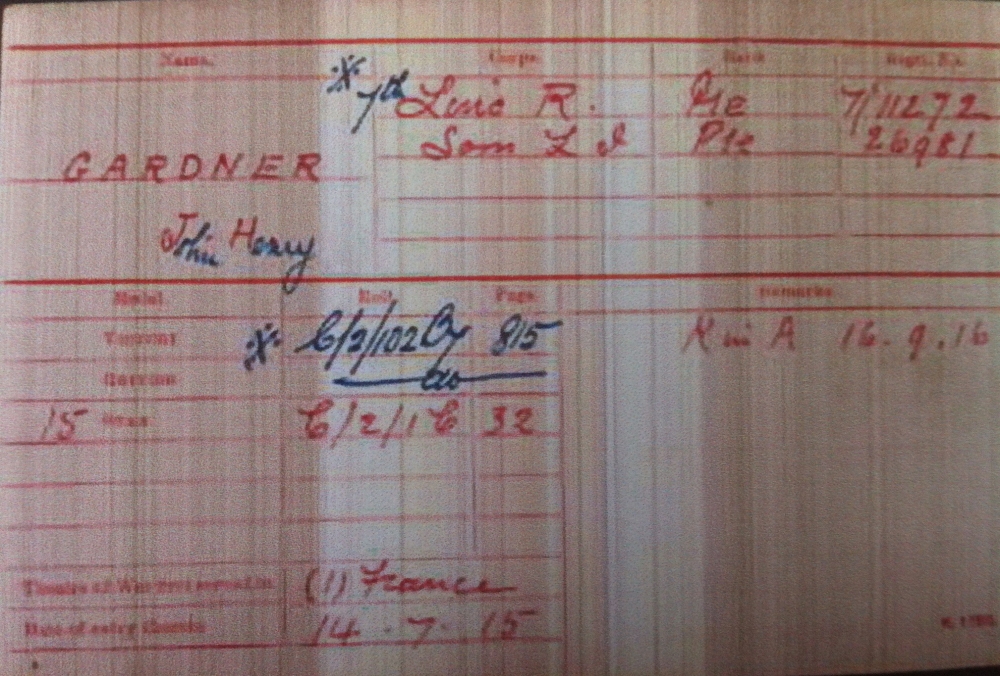 Name. Corps. Rank Regtl. No.
7th Linc R. Pte 7/11272
GARDNER Som L I Pte 26981
John Henry
Medal. Roll Page. Remarks
Victory C/2/102 By 815 K in A 16.9.16
British do
15 Star C/2/1C 32
Theatre of War first served in (1) France
Date of entry therein 14.7.15